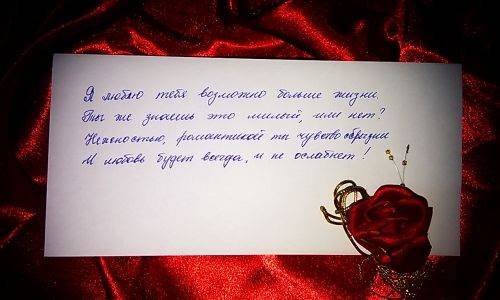 Я люблю тебя возможно больше жизни.
Ты же знаешь это милый, или нет?
Нежностью, романтикой ты чувство сбрызни
И любовь будет всегда, и не ослабнет!